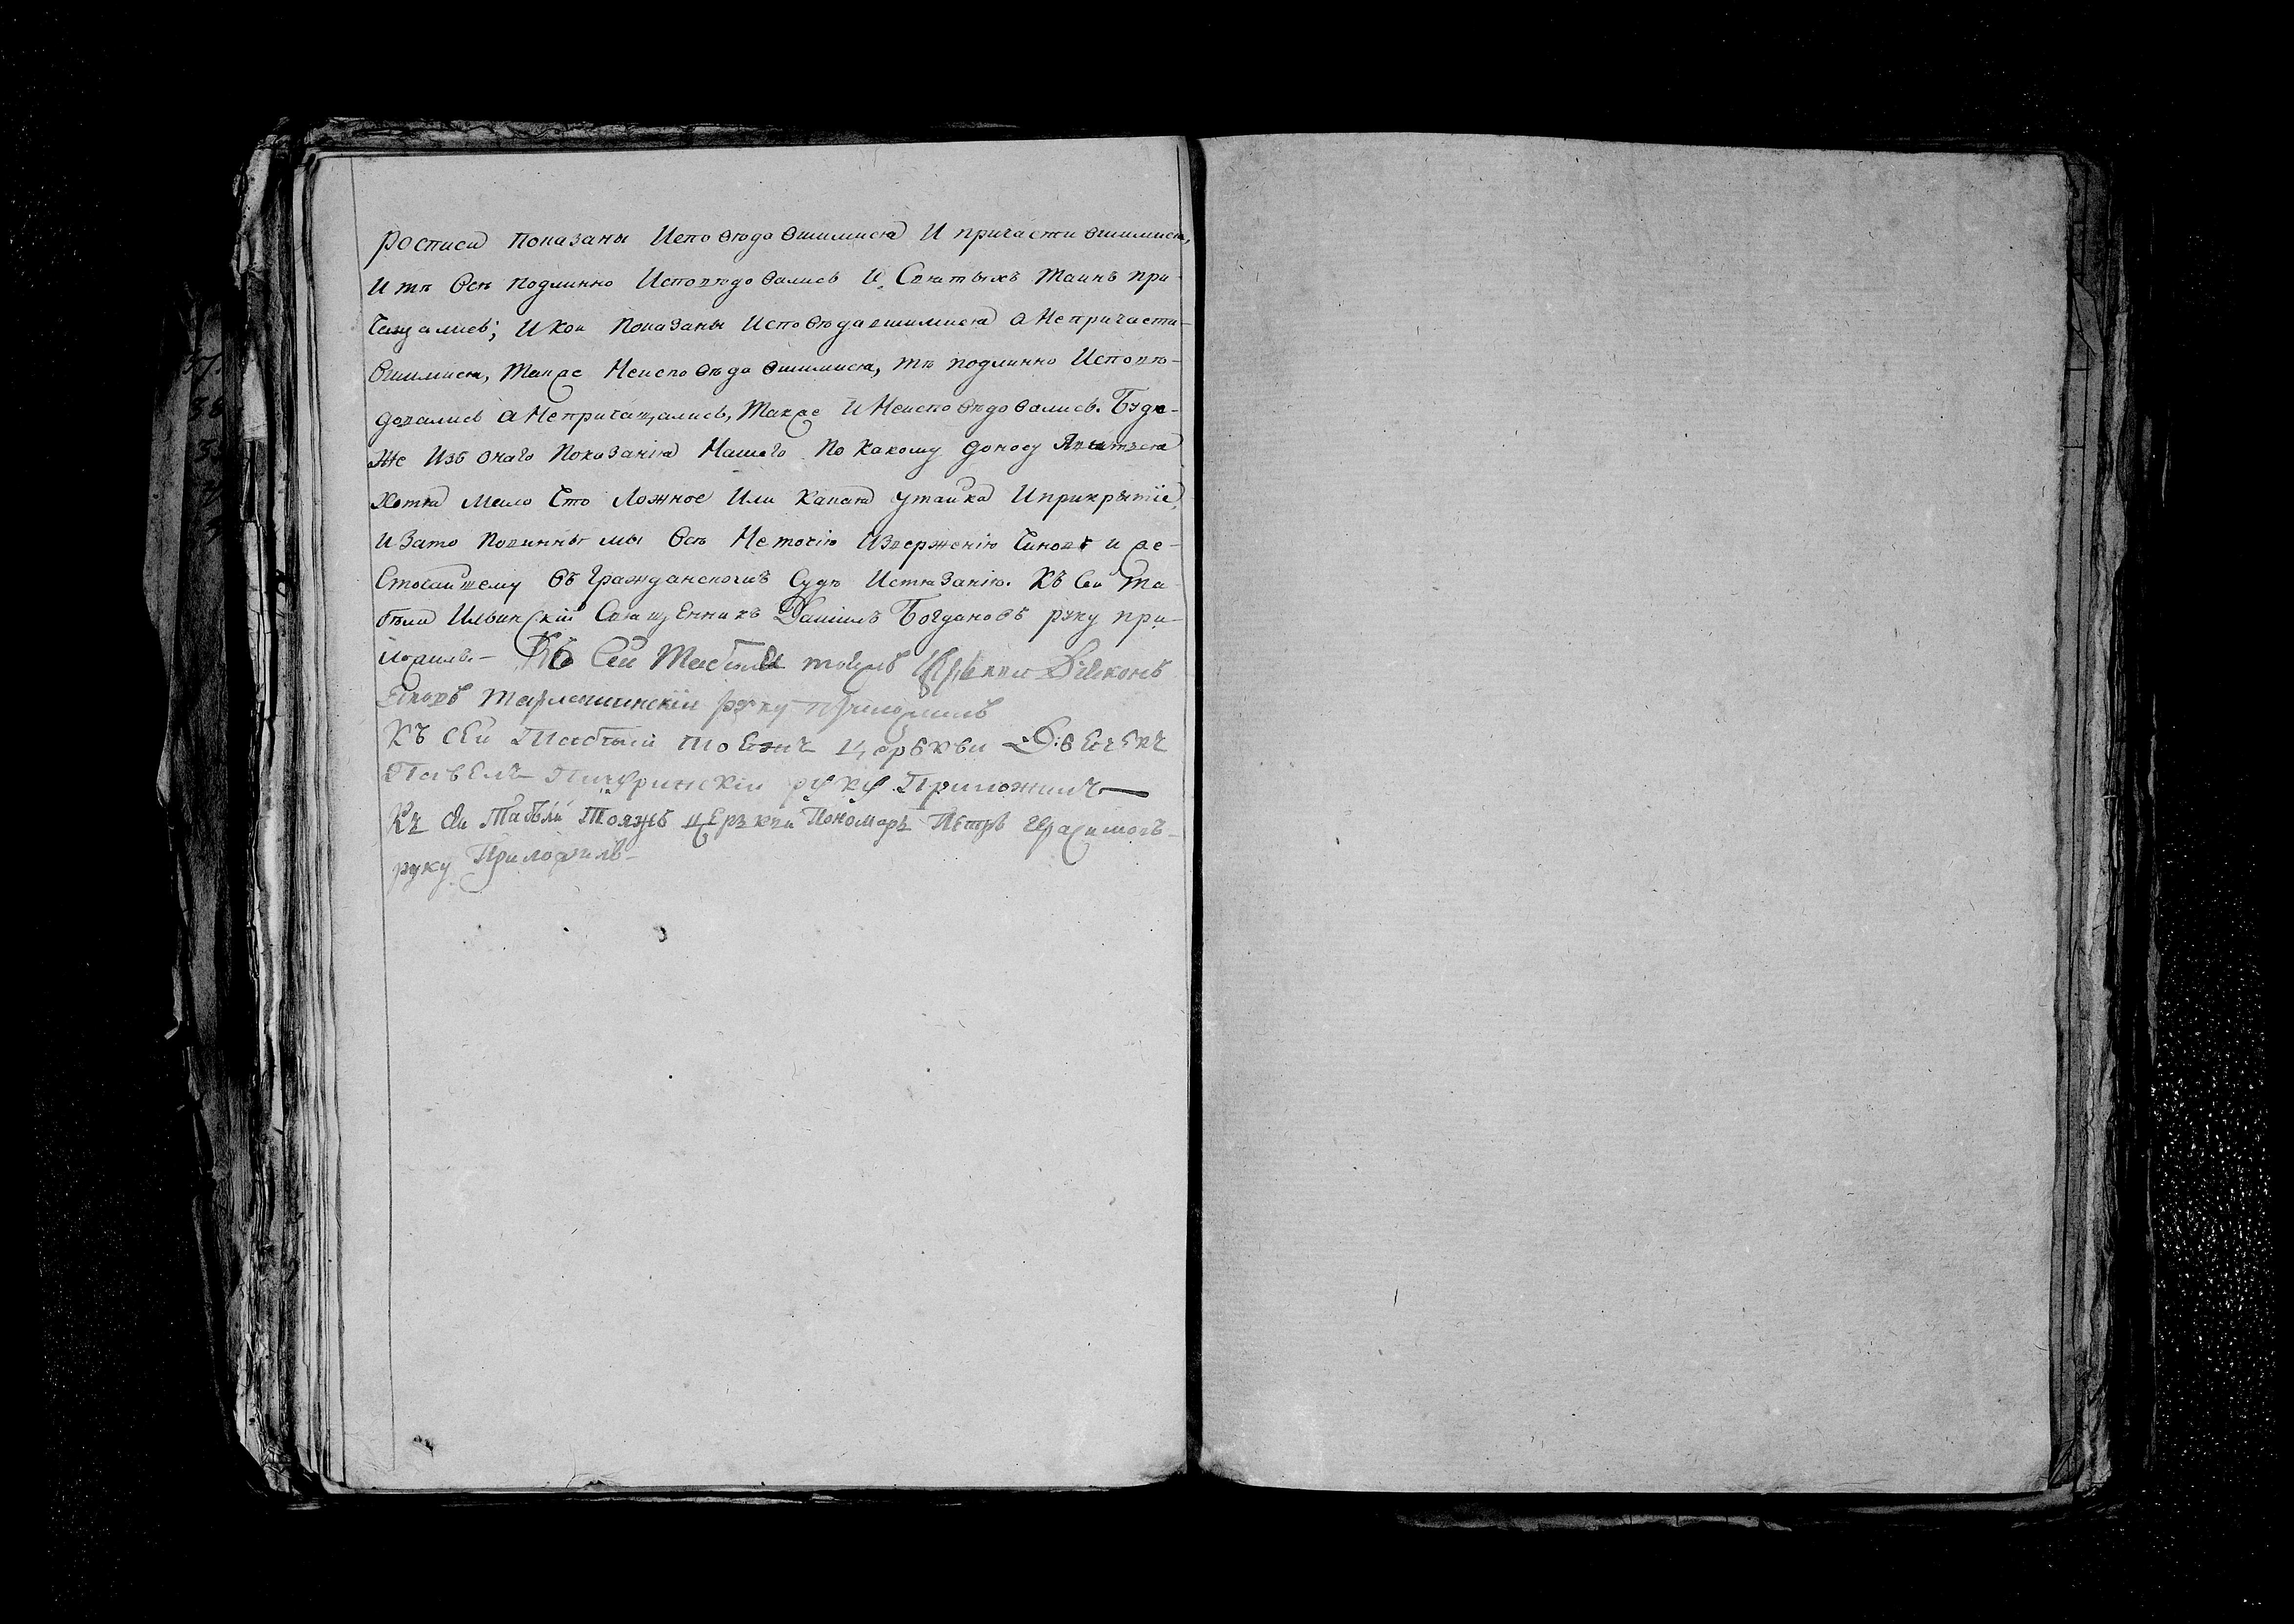 росписи показаны исповѣдовшимися и причастившимися,
и тѣ всѣ подлинно исповѣдовались и святыхъ таинъ при-
чащались; и кои показаны исповѣдавшимися а непричасти-
вшимися, также неисповѣдовшимися, тѣ подлинно исповѣ-
довались а непричащались, также и неисповѣдовались. Буде-
же изъ онаго показанія нашего по какому доносу явится
хотя мало что ложное или какая утайка и прикрытіе,
и зато повинны мы всѣ неточію изверженію чиновъ и же-
сточайшему въ гражданскомъ судѣ истязанію. Къ сей та-
бели Ильинскій священникъ Даніилъ Богдановъ руку при-
ложилъ. – Къ сей табели тоижъ церкви Діаконъ
руку приложилъ
Къ сей табели тоежъ церькви Дьечекъ
Павелъ руку приложилъ
Къ сеи табѣли тояжъ церькви пономаръ Петръ Герасимовъ
руку приложилъ
37.
38